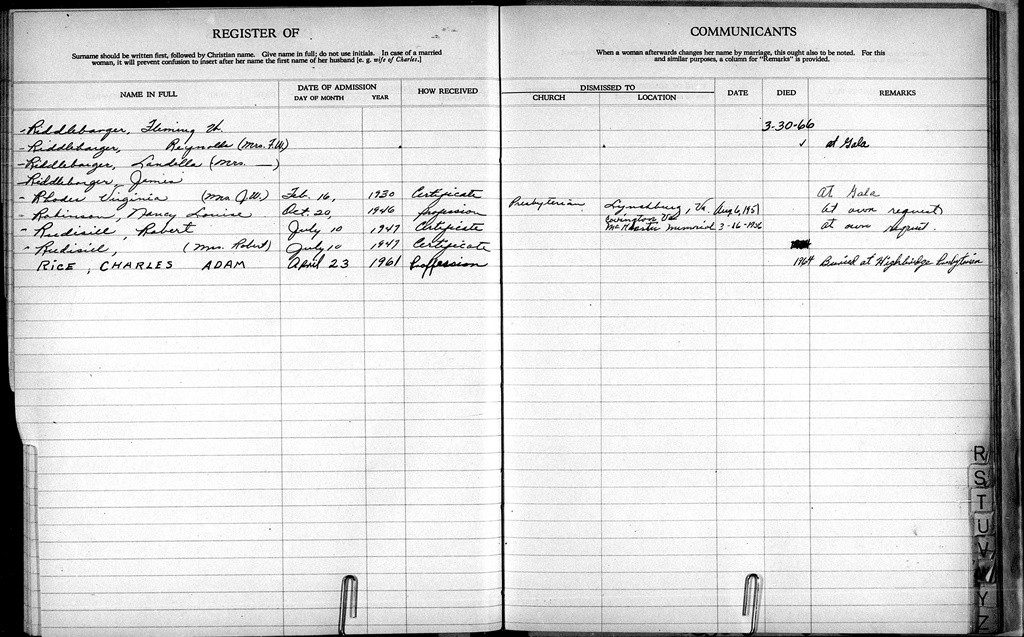 REGISTER OF
Surname should be written first, followed by Christian name. Give name in full; do not use initials. In case of a married
woman, it will prevent confusion to insert after her name the first name of her husband [e. g. wife of Charles.]
NAME IN FULL
DATE OF ADMISSION
DAY OF MONTH YEAR
HOW RECEIVED
COMMUNICANTS
When a woman afterwards changes her name by marriage, this ought also to be noted. For this
and similar purposes, a column for "Remarks" is provided.
DISMISSED TO
CHURCH LOCATION
DATE
DIED
REMARKS
- Riddlebarger, Fleming W. 3-30-66
- Riddlebarger, Reynolds (Mrs. F.W) ✓ at Gala
- Riddlebarger, Landella (Mrs. —)
- Riddlebarger, Jamie
- Rhodes Virginia (Mrs J.W.) Feb. 16, 1930 Certificate At Gala
- Robinson, Nancy Louise Oct. 20, 1946 profession Presbyterian Lynchburg, Va. Aug 6, 1951 at own request
- Rudisill, Robert July 10 1947 Certificate Covington Va McAllister Memorial 3-16-1956 at own request.
- Rudisill, (Mrs. Robert) July 10 1947 Certificate
RICE, CHARLES ADAM April 23 1961 Proffession 1964 Buried at Highbridge Presbyterian
R
S
T
U
V
W
Y
Z